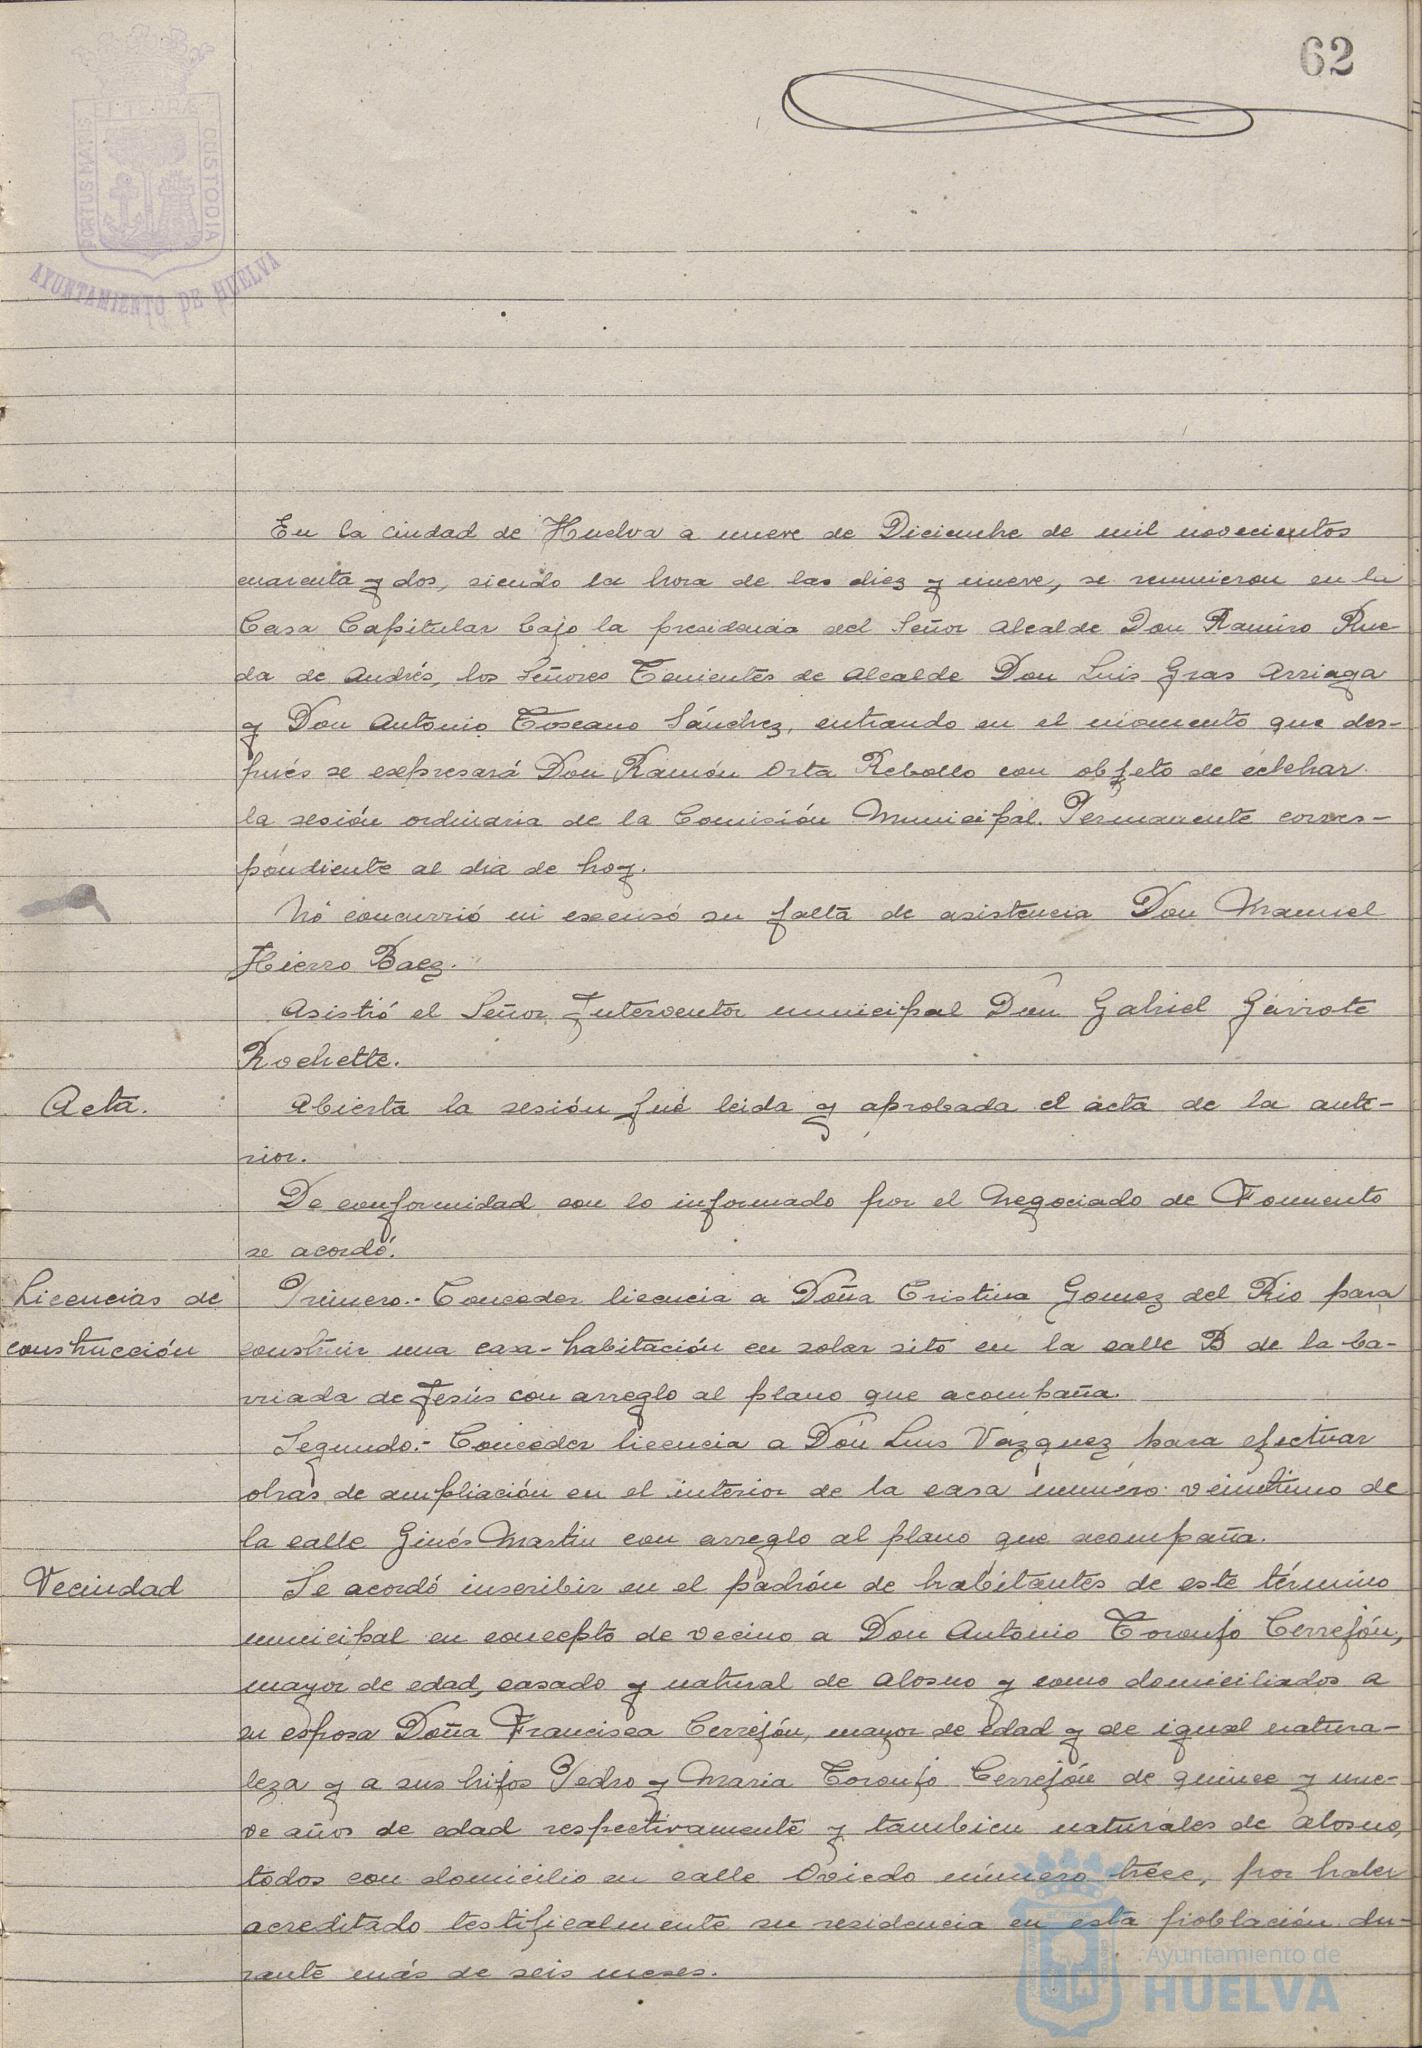 62
PORTUS MARIS ET TERRAE CUSTODIA
AYUNTAMIENTO DE HUELVA
En la ciudad de Huelva a nueve de Diciembre de mil novecientos
cuarenta y dos, siendo la hora de las diez y nueve, se reunieron en la
Casa Capitular bajo la presidencia del Señor Alcalde Don Ramiro Rue-
da de Andrés, los Señores Tenientes de Alcalde Don Luis Gras Arriaga
y Don Antonio Toscano Sánchez, entrando en el momento que des-
pués se expresará Don Ramón Orta Rebollo con objeto de celebrar
la sesión ordinaria de la Comisión Municipal Permanente corres-
pondiente al dia de hoy.
No concurrió ni excusó su falta de asistencia Don Manuel
Hierro Baez.
Asistió el Señor Interventor municipal Don Gabriel Garrote
Rochette.
Acta.
Abierta la sesión fué leida y aprobada el acta de la ante-
rior.
De conformidad con lo informado por el Negociado de Fomento
se acordó:
Licencias de
construcción
Primero.- Conceder licencia a Doña Cristina Gomez del Rio para
construir una casa-habitación en solar sito en la calle B de la ba-
rriada de Jesús con arreglo al plano que acompaña.
Segundo.- Conceder licencia a Don Luis Vázquez para efectuar
obras de ampliación en el interior de la casa número veintiuno de
la calle Ginés Martin con arreglo al plano que acompaña.
Vecindad
Se acordó inscribir en el padrón de habitantes de este término
municipal en concepto de vecino a Don Antonio Toronjo Cerrejón,
mayor de edad, casado y natural de Alosno y como domiciliados a
su esposa Doña Francisca Cerrejón, mayor de edad y de igual natura-
leza y a sus hijos Pedro y Maria Toronjo Cerrejón de quince y nue-
ve años de edad respectivamente y tambien naturales de Alosno,
todos con domicilio en calle Oviedo número trece, por haber
acreditado testificalmente su residencia en esta población du-
rante más de seis meses.
Ayuntamiento de
HUELVA